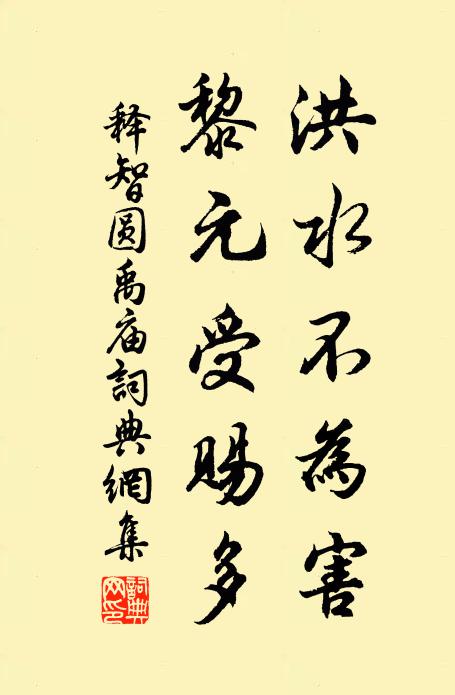 洪水不為害
黎元受賜多
释智圆禹庙詞典網集
詞典网印